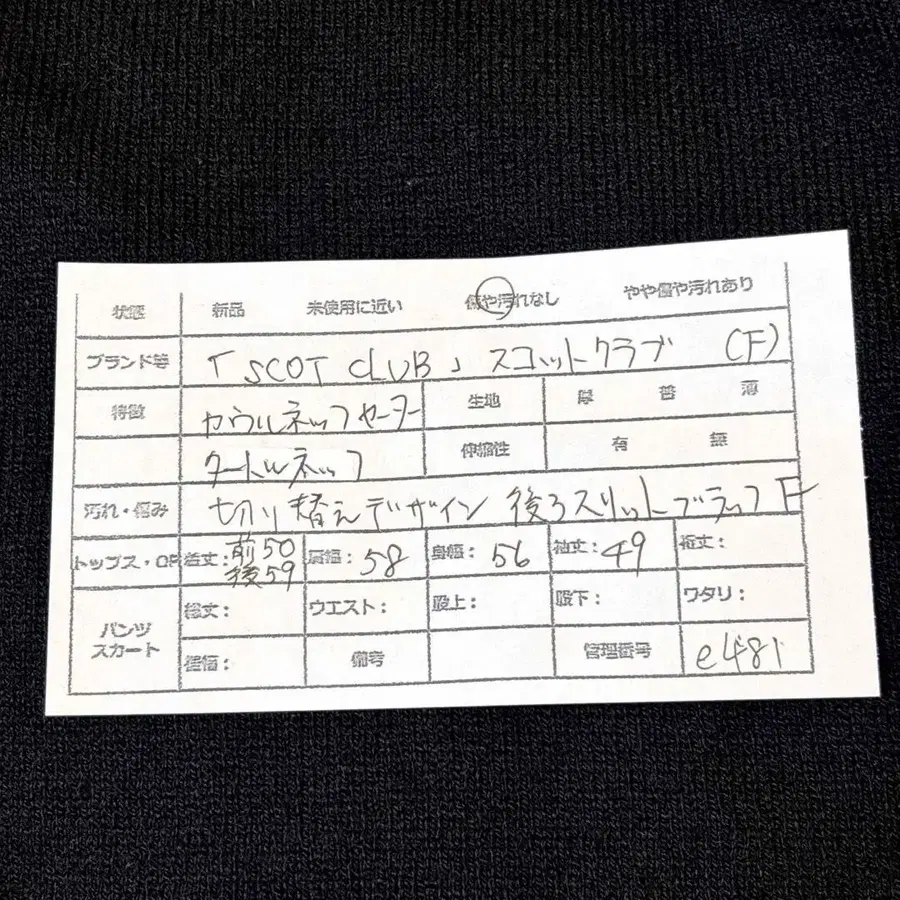 状態 新品 未使用に近い 傷や汚れなし やや傷や汚れあり
ブランド等 「SCOT CLUB」スコットクラブ (F)
特徴 カウルネックセーター 生地 厚 普 薄
タートルネック 伸縮性 有 無
汚れ・傷み 切り替えデザイン 後ろスリット ブラック F
トップス・OP 着丈: 前50 後59 肩幅: 58 身幅: 56 袖丈: 49 裄丈:
パンツ スカート 総丈: ウエスト: 股上: 股下: ワタリ:
裾幅: 備考 管理番号 e481